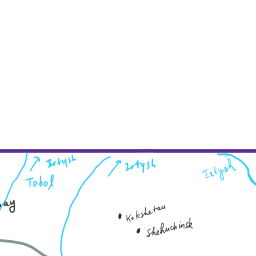 Irtysh
Tobol
Irtysh
Irtysh
Kokshetau
Shchuchinsk